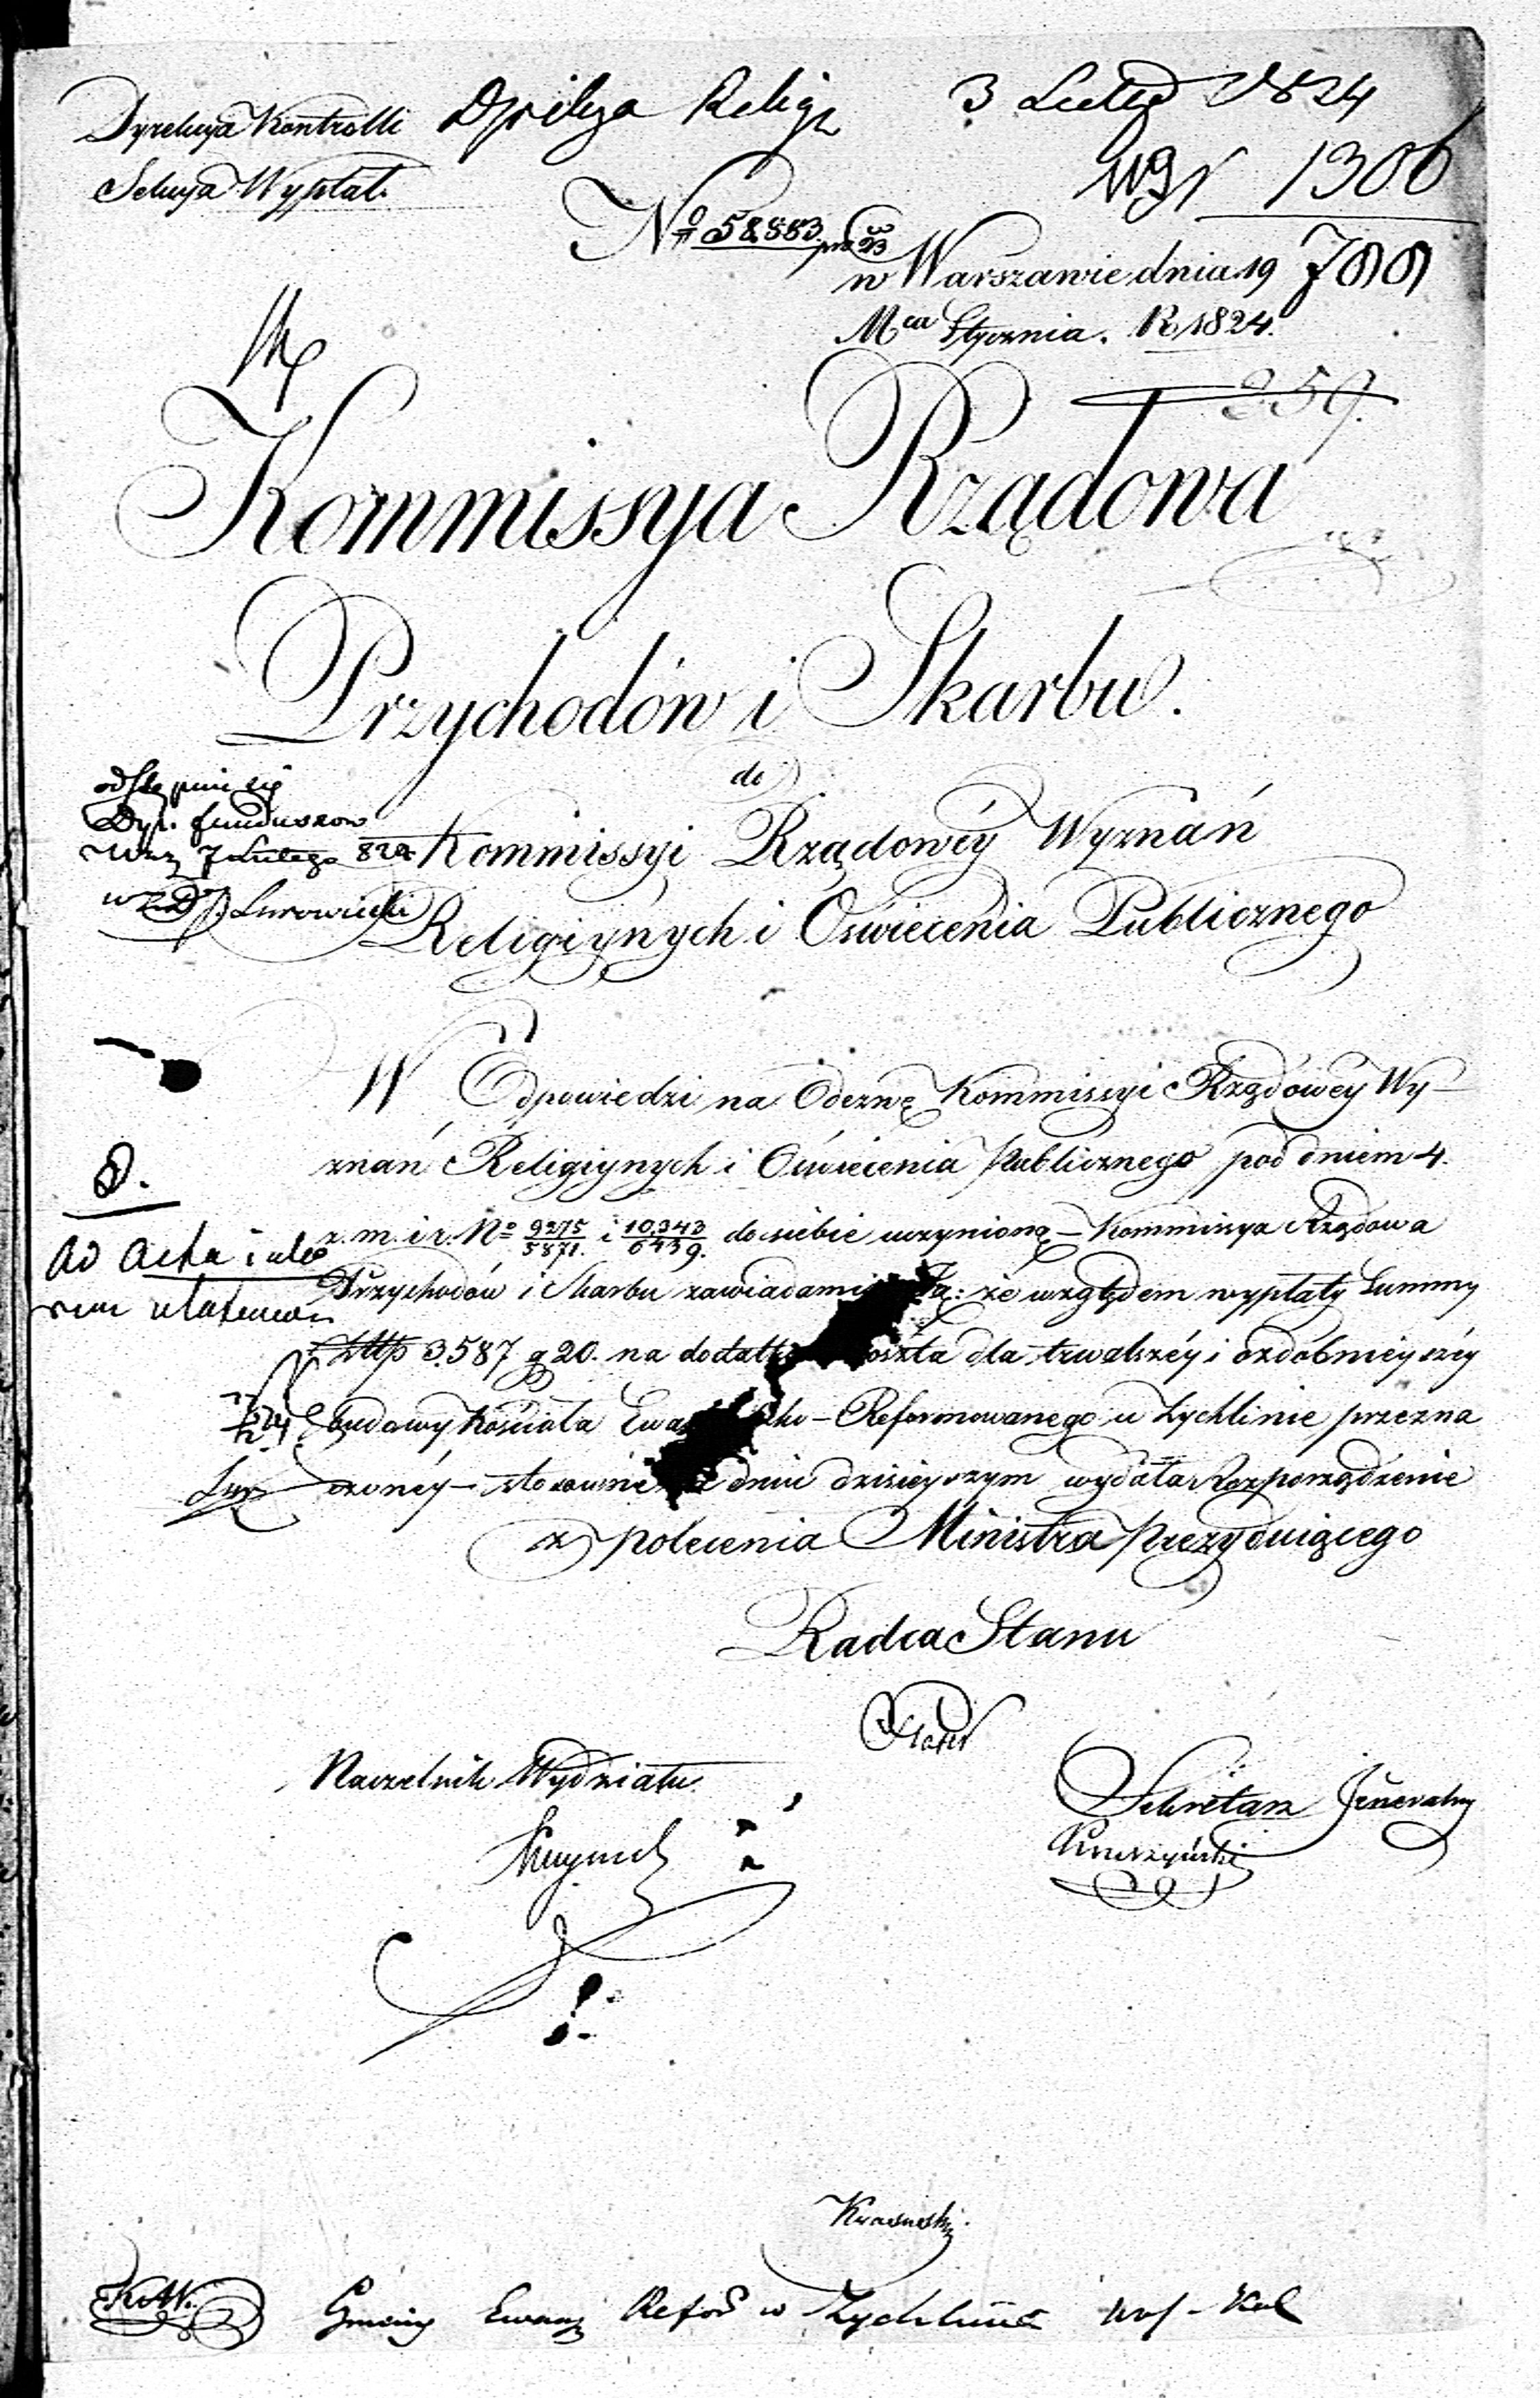 Dyrekcya Kontrolli
Sekcya Wypłat.
3 Luteg 1824
1306
No 58,883
w Warszawie dnia 19
Mca Stycznia. R. 1824.
259.
Kommissya Rządowa
Przychodów i Skarbu.
do
Kommissyi Rządowéy Wyznań
Religiynych i Oświecenia Publicznego
odstępuie się
Dyr. funduszow
7 Lutego 824
W Odpowiedzi na Odezwę Kommissyi Rządowéy Wy-
znań Religiynych i Oświecenia Publicznego pod dniem 4.
z. m. i r. No 9275/5871. i 10,343/6439. do siebie uczynioną – Kommissya Rządowa
Przychodów i Skarbu zawiadamia Ją: że względem wypłaty Summy
Złtp 3,587 g 20. na koszta dla trwalszéy i ozdobnieyszéy
budowy Kościoła – Reformowanego w Zychlinie przezna
czonéy – stosownie dniu dzisieyszym wydała Rozporządzenie
z polecenia Ministra Prezyduiącego
Radca Stanu
Naczelnik Wydziału
Sekretarz Jeneralny
Kruszyński
Ad Acta
Krasuski
Gminy Ewang Refor w Zychlinie